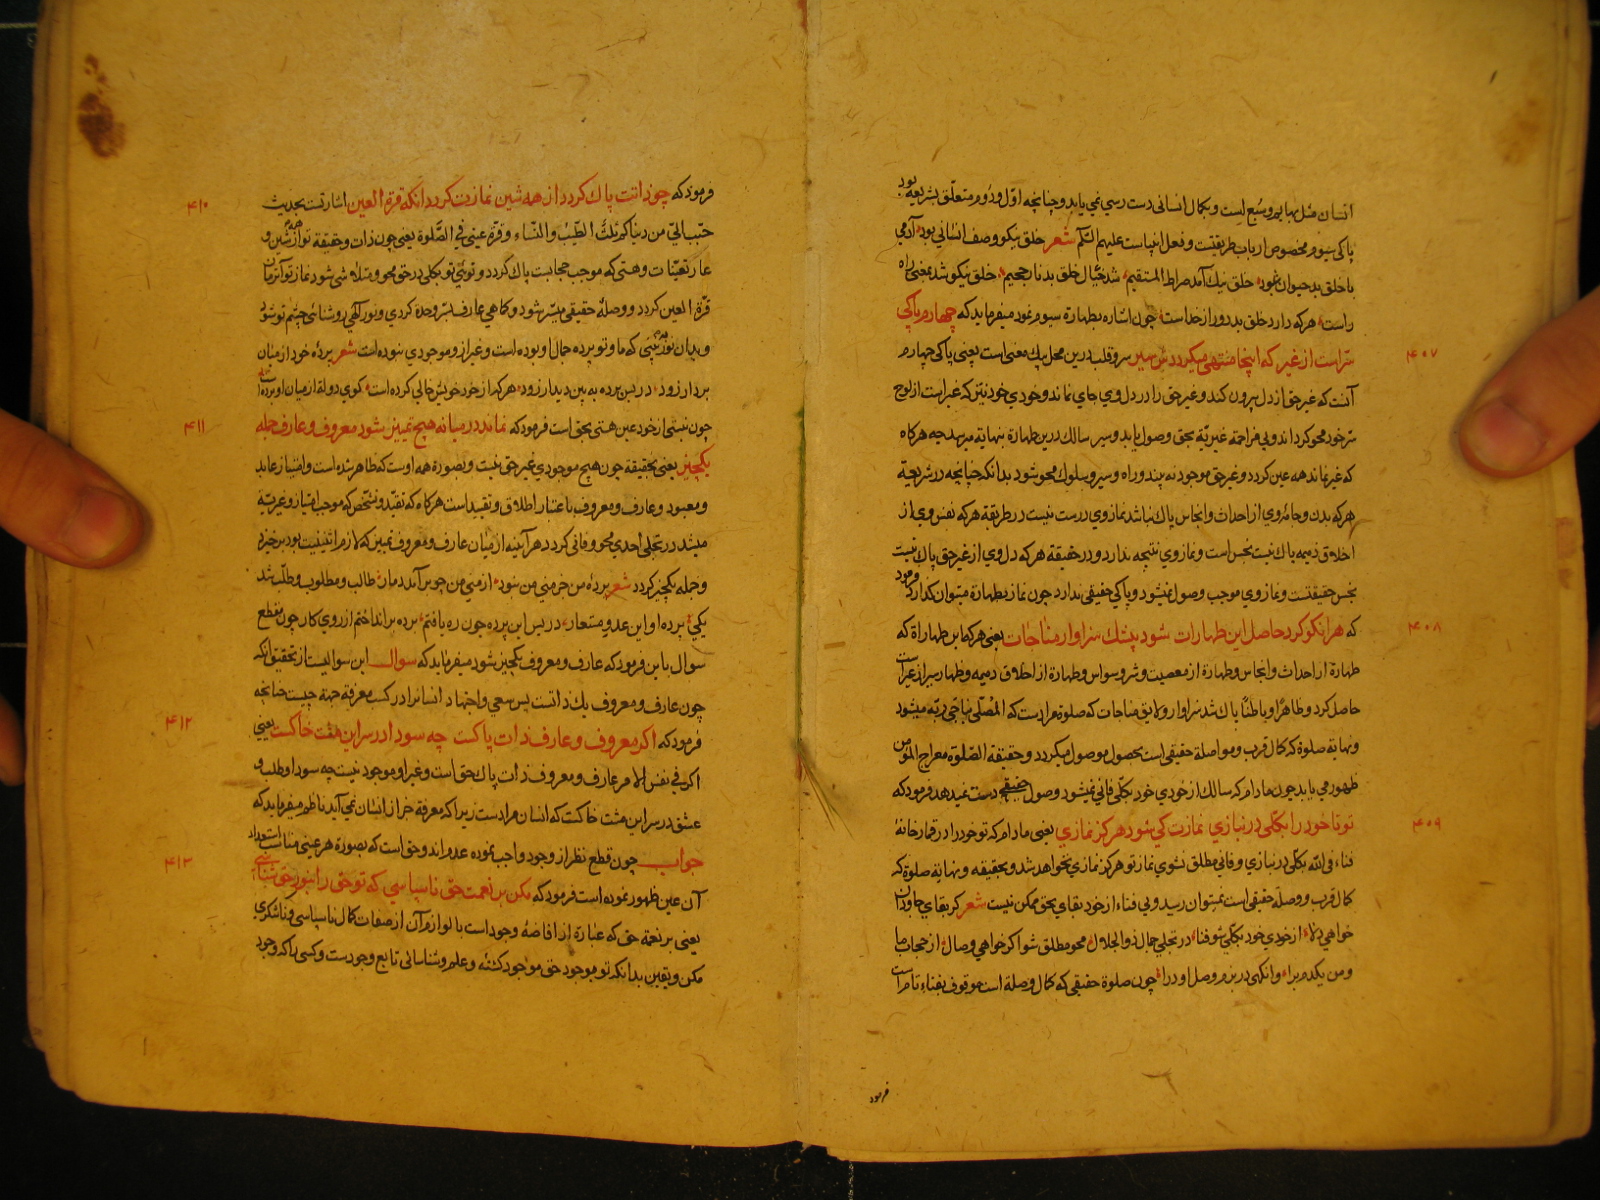 انسان مثل بهایم و سبع است و بکمال انسانی دست رسی نمی یابد و چنانچه اول و دوم متعلق بشریعه بود
پاکی سیوم مخصوص ارباب طریقتست و فعل انبیاست علیهم السلم شعر خلق نیکو وصف انسانی بود آدمی
با خلق بد حیوان بود خلق نیک آمد صراط المستقیم شد خیال خلق بد نار جحیم خلق نیکو شد بمعنی راه
راست هرکه دارد خلق بد دور از خداست چون اشاره بطهارة سیوم نمود میفرماید که چهارم پاکی
سرّاست از غیر که اینجا منتهی میکرددش سیر سر و قلب درین محل یک معنی است یعنی پاکی چهارم
۴۰۷
آنست که غیر حق از دل بیرون کند و غیر حق را در دل وی جای نماند و خودی خود نیز که غیر است از لوح
سر خود محو کرداند و بی مزاحمة غیریة بحق وصول یابد و سیر سالک درین طهارة بنهایة میرسد چه هرکاه
که غیر نماند همه عین کردد و غیر حق موجود نه بیند و راه و سیر و سلوک محو شود بدانکه چنانچه در شریعة
هرکه بدن و جامهٔ وی از احداث و انجاس پاک نباشد نماز وی درست نیست در طریقة هرکه نفس وی از
اخلاق ذمیمه پاک نیست نجس است و نماز وی نتیجه ندارد و در حقیقة هرکه دل وی از غیر حق پاک نیست
نجس حقیقتست و نماز وی موجب وصول نمیشود و پاکی حقیقی ندارد چون نماز بطهارة میتوان کذارد فرمود
که هر انکو کرد حاصل این طهارات شود بیشک سزاوار مناجات یعنی هرکه این طهاراة که
۴۰۸
طهارة از احداث و انجاس و طهارة از معصیت و شر وسواس و طهارة از اخلاق ذمیمه و طهارة سر از غیراست
حاصل کرد و ظاهرًا و باطنًا پاک شد سزاوار و لایق مناجات که صلوة مرادست که المصلّی یناجی ربّه میشود
و نهایة صلوة که کمال قرب و مواصلة حقیقی است بحصول موصول میکردد و حقیقة الصّلوة معراج المؤمن
ظهور می یابد چون مادام که سالک از خودی خود بکلّی فانی نمیشود وصول حقیقی دست نمیدهد فرمود که
تو تا خود را بکلّی در نبازی نمازت کی شود هرکز نمازی یعنی مادام که تو خود را در قمارخانهٔ
۴۰۹
فناء فی الله بکلّی در نبازی و فانی مطلق نشوی نماز تو هرکز نمازی نخواهد شد و بحقیقه و نهایة صلوة که
کمال قرب و وصلة حقیقی است نمیتوان رسید و بی فناء از خود بقای بحق ممکن نیست شعر کر بقای جاودان
خواهی دلا از خودی خود بکلّی شو فنا در تجلّی جمال ذوالجلال محو مطلق شو اکر خواهی وصال از حجاب ما
و من یکدم برا وانکهی در بزم وصل او درا چون صلوة حقیقی که کمال وصلة است موقوف بفناء تام است
فرمود
فرمود که چو ذاتت پاک کردد از همه شین نمازت کردد انکه قرة العین اشارتست بحدیث
۴۱۰
حبّب الیّ من دنیاکم ثلث الطّیب و النّساء و قرة عینی فی الصّلوة یعنی چون ذات و حقیقة تو از همه شین و
عار تعیّنات و هستی که موجب حجابست پاک کردد و توئی تو بکلّی در حق محو و متلاشی شود نماز تو آنزمان
قرّة العین کردد و وصلهٔ حقیقی میسّر شود و کماهی عارف بسرّ وحدة کردی و نور آلهی روشنائی چشم تو شود
و بدان نور به بینی که ما و تو پرده جمال او بوده است و غیر از و موجودی نبوده است شعر پردهٔ خود از میان
بردار زود در پس پرده به بین دیدار زود هرکه از خود خویش خالی کرده است کوی دولة از میان او برده است
چون نیستی از خود عین هستی بحق است فرمود که نماند در میانه هیچ تمییز شود معروف و عارف جمله
۴۱۱
یکچیز یعنی بحقیقة چون هیچ موجودی غیر حق نیست و بصورة همه اوست که ظاهر شده است و امتیاز عابد
و معبود و عارف و معروف باعتبار اطلاق و تقیید است هرکاه که تقیّد و تشخّص که موجب امتیاز و غیریّة
میشد در تجلّی احدی محو و فانی کردد هرآینه از میان عارف و معروف تمییز که لازم اثنینیت بود برخیزد
و جمله یکچیز کردد شعر پردهٔ من جز منیِ من نبود از منی من چو برآمد دمار طالب و مطلوب و طلب شد
یکی پرده او این عدد مستعار در پس این پرده چون ره یافتم پرده برانداختم از روی کار چون مقطع
سوال باین فرمود که عارف و معروف یکچیز شود میفرماید که سوال این سوالیست از تحقیق انکه
چون عارف و معروف یک ذاتست پس سعی و اجتهاد انسانرا در کسب معرفة جهة چیست چنانچه
فرمود که اکر معروف و عارف ذات پاکست چه سودا در سر این مشت خاکست یعنی
۴۱۲
اکر فی نفس الامر عارف و معروف ذات پاک حق است و غیر او موجود نیست چه سودا و طلب و
عشق در سر این مشت خاکست که انسان مرادست زیرا که معرفة جز از انسان نمی آید ناظم میفرماید که
جواب چون قطع نظر از وجود واجب نموده عدم اند و حق است که بصورة هر عینی مناسب استعداد
آن عین ظهور نموده است فرمود که مکن بر نعمت حق ناسپاسی که تو حق را بنور حق شناسی
۴۱۳
یعنی بر نعمة حق که عبارة از افاضهٔ وجود است با لوازم آن از صفات کمال ناسپاسی و ناشکری
مکن و یقین بدانکه تو بوجود حق موجود کشتهٔ و علم و شناسائی تابع وجودست و کسی را که وجود